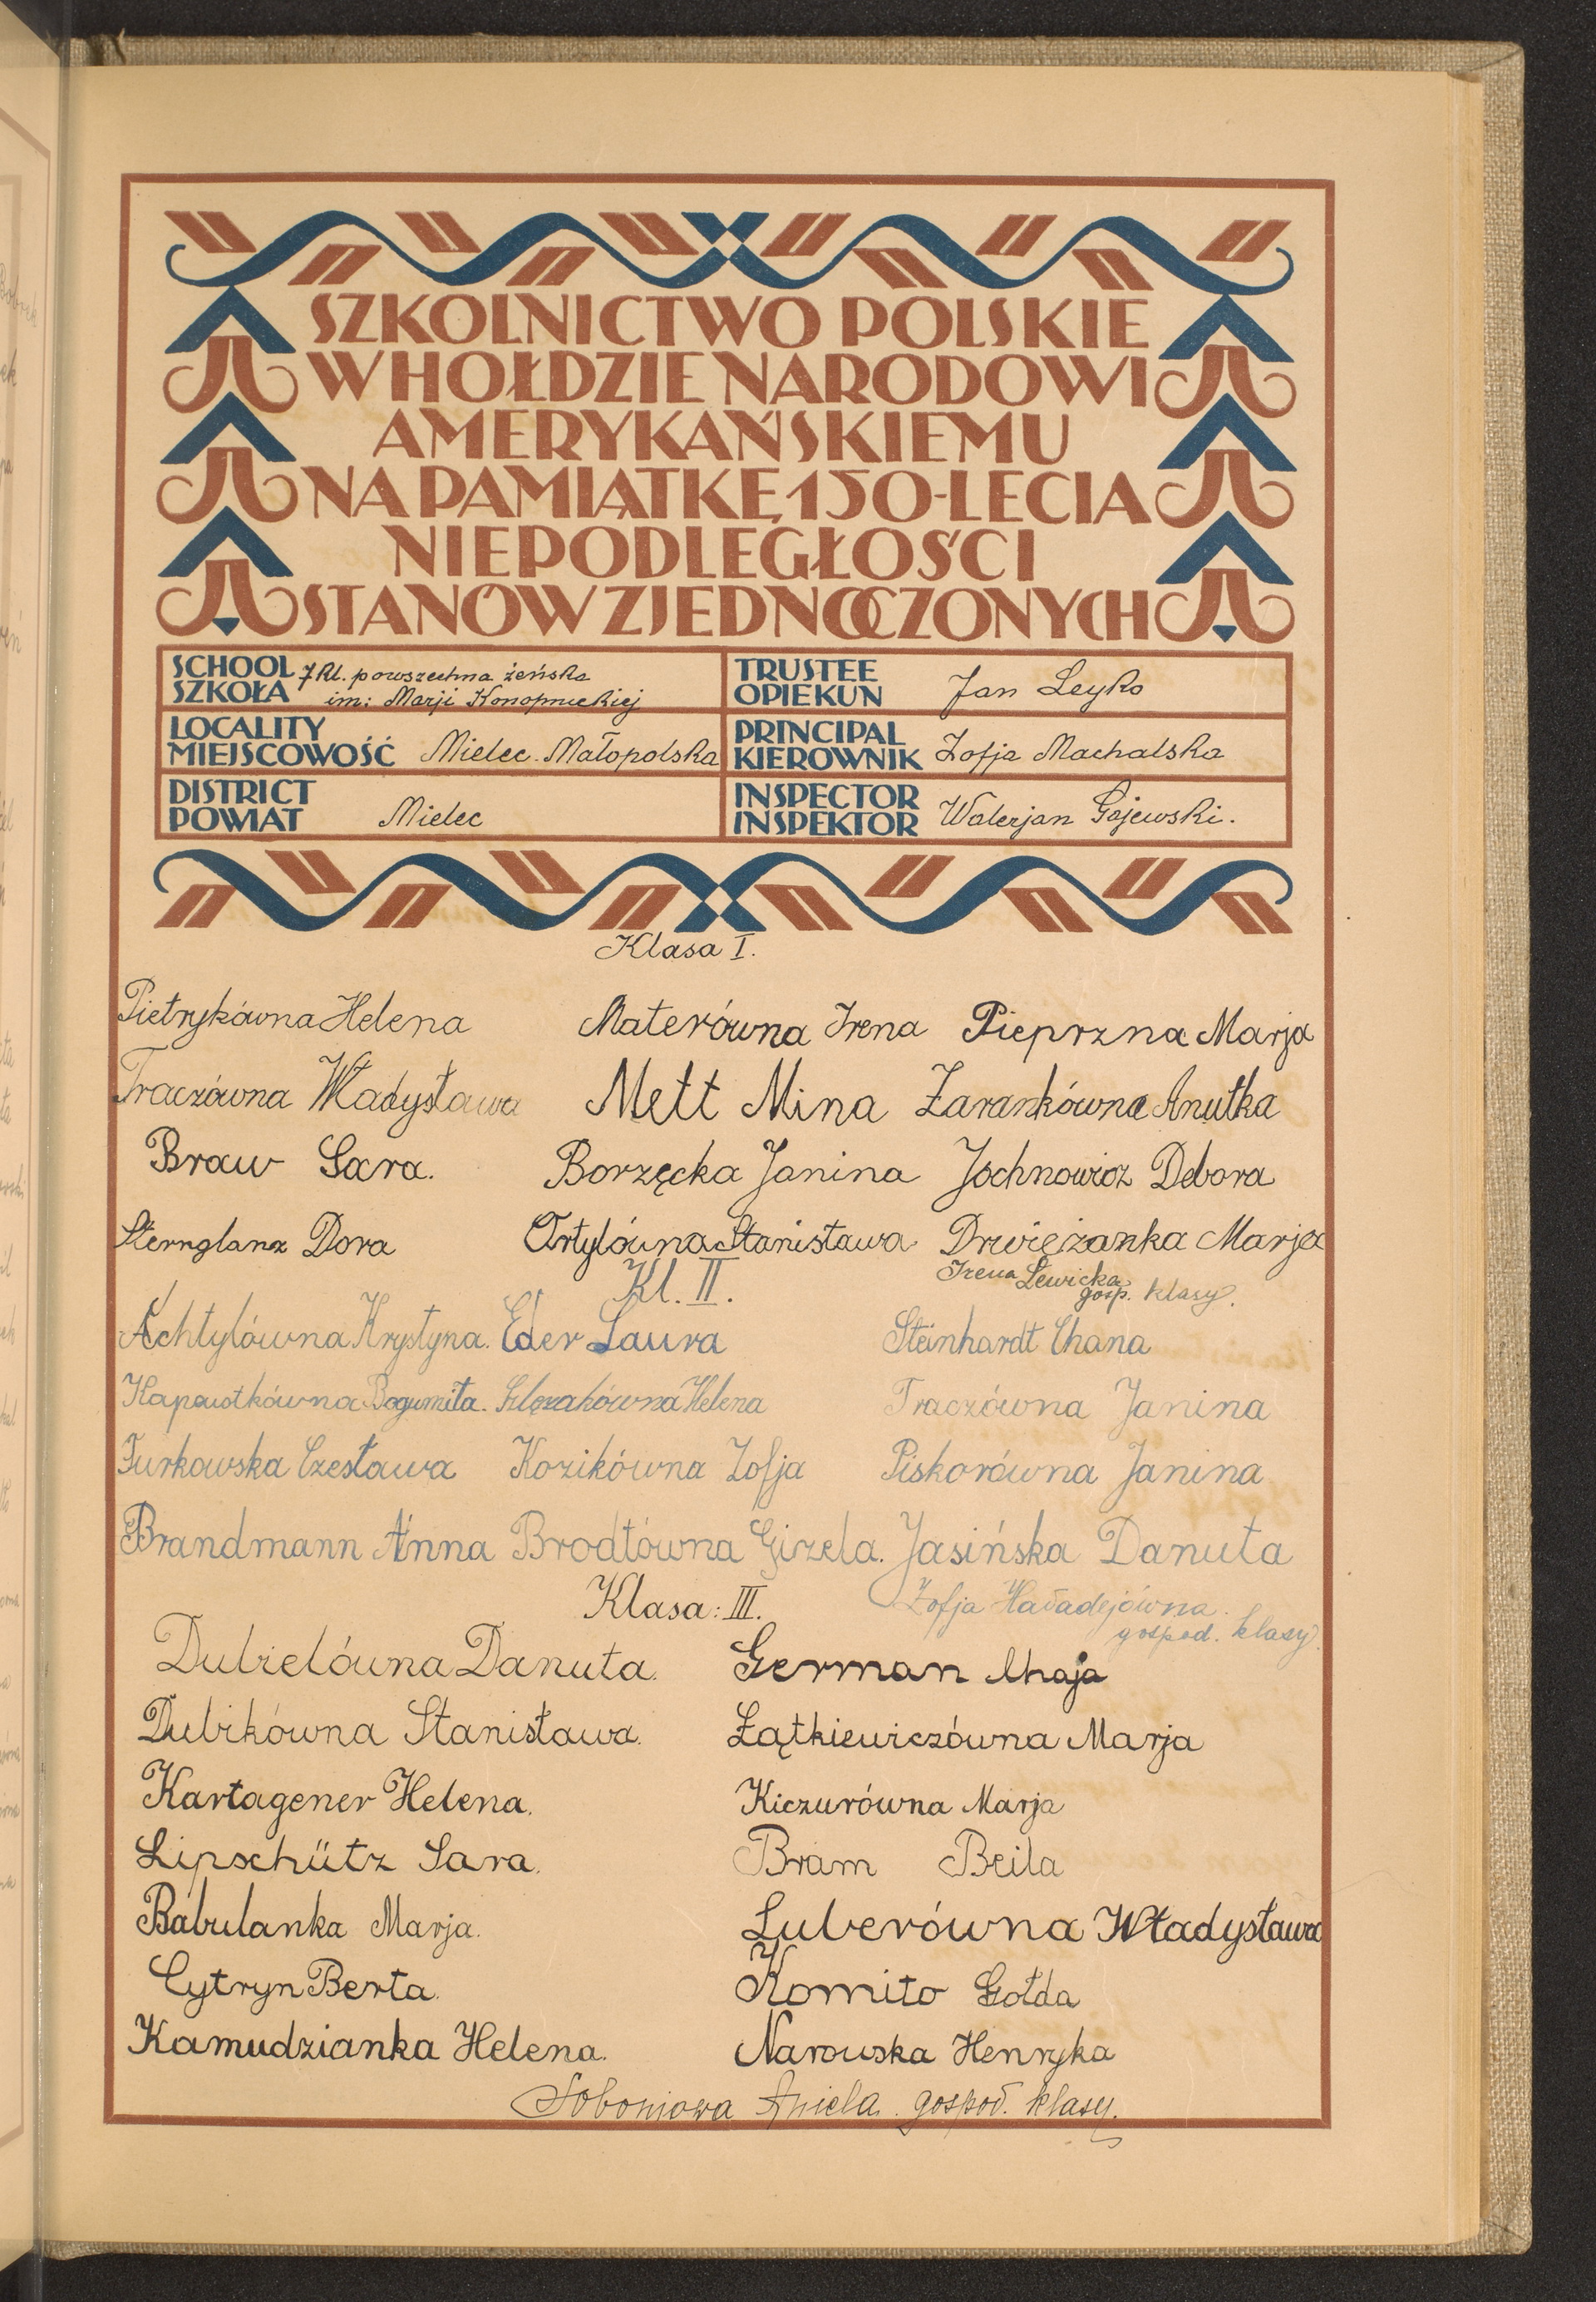 SZKOLNICTWO POLSKIE
W HOŁDZIE NARODOWI
AMERYKAŃSKIEMU
NA PAMIĄTKĘ 150-LECIA
NIEPODLEGŁOŚCI
STANÓW ZJEDNOCZONYCH
SCHOOL SZKOŁA 7 kl. powszechna żeńska
im: Marji Konopnickiej
TRUSTEE OPIEKUN Jan Leyko
LOCALITY MIEJSCOWOŚĆ Mielec - Małopolska
PRINCIPAL KIEROWNIK Zofja Machalska
DISTRICT POWIAT Mielec
INSPECTOR INSPEKTOR Walerjan Gajewski.
Klasa I.
Pietrykówna Helena Materówna Irena Pieprzna Marja
Traczówna Władysława Mett Mina Zarankówna Anutka
Braw Sara. Borzęcka Janina Jochnowicz Debora
Sternglanz Dora Ortylówna Stanisława Drwiężanka Marja
Kl. II.
Irena Lewicka
gosp. klasy.
Achtylówna Krystyna. Eder Laura Steinhardt Chana
Kapustkówna Bogumiła. Ślęzakówna Helena Traczówna Janina
Furkowska Czesława Kozikówna Zofja Piskorówna Janina
Brandmann Anna Brodtówna Gizela. Jasińska Danuta
Klasa: III.
Zofja
gospod. klasy.
Dubielówna Danuta. German Chaja
Dubikówna Stanisława. Łątkiewiczówna Marja
Kartagener Helena. Kiczurówna Marja
Lipschütz Sara. Bram Beila
Babulanka Marja. Luberówna Władysława
Cytryn Berta. Komito Gołda
Kamudzianka Helena. Narowska Henryka
Soboniowa Aniela. gospod. klasy.